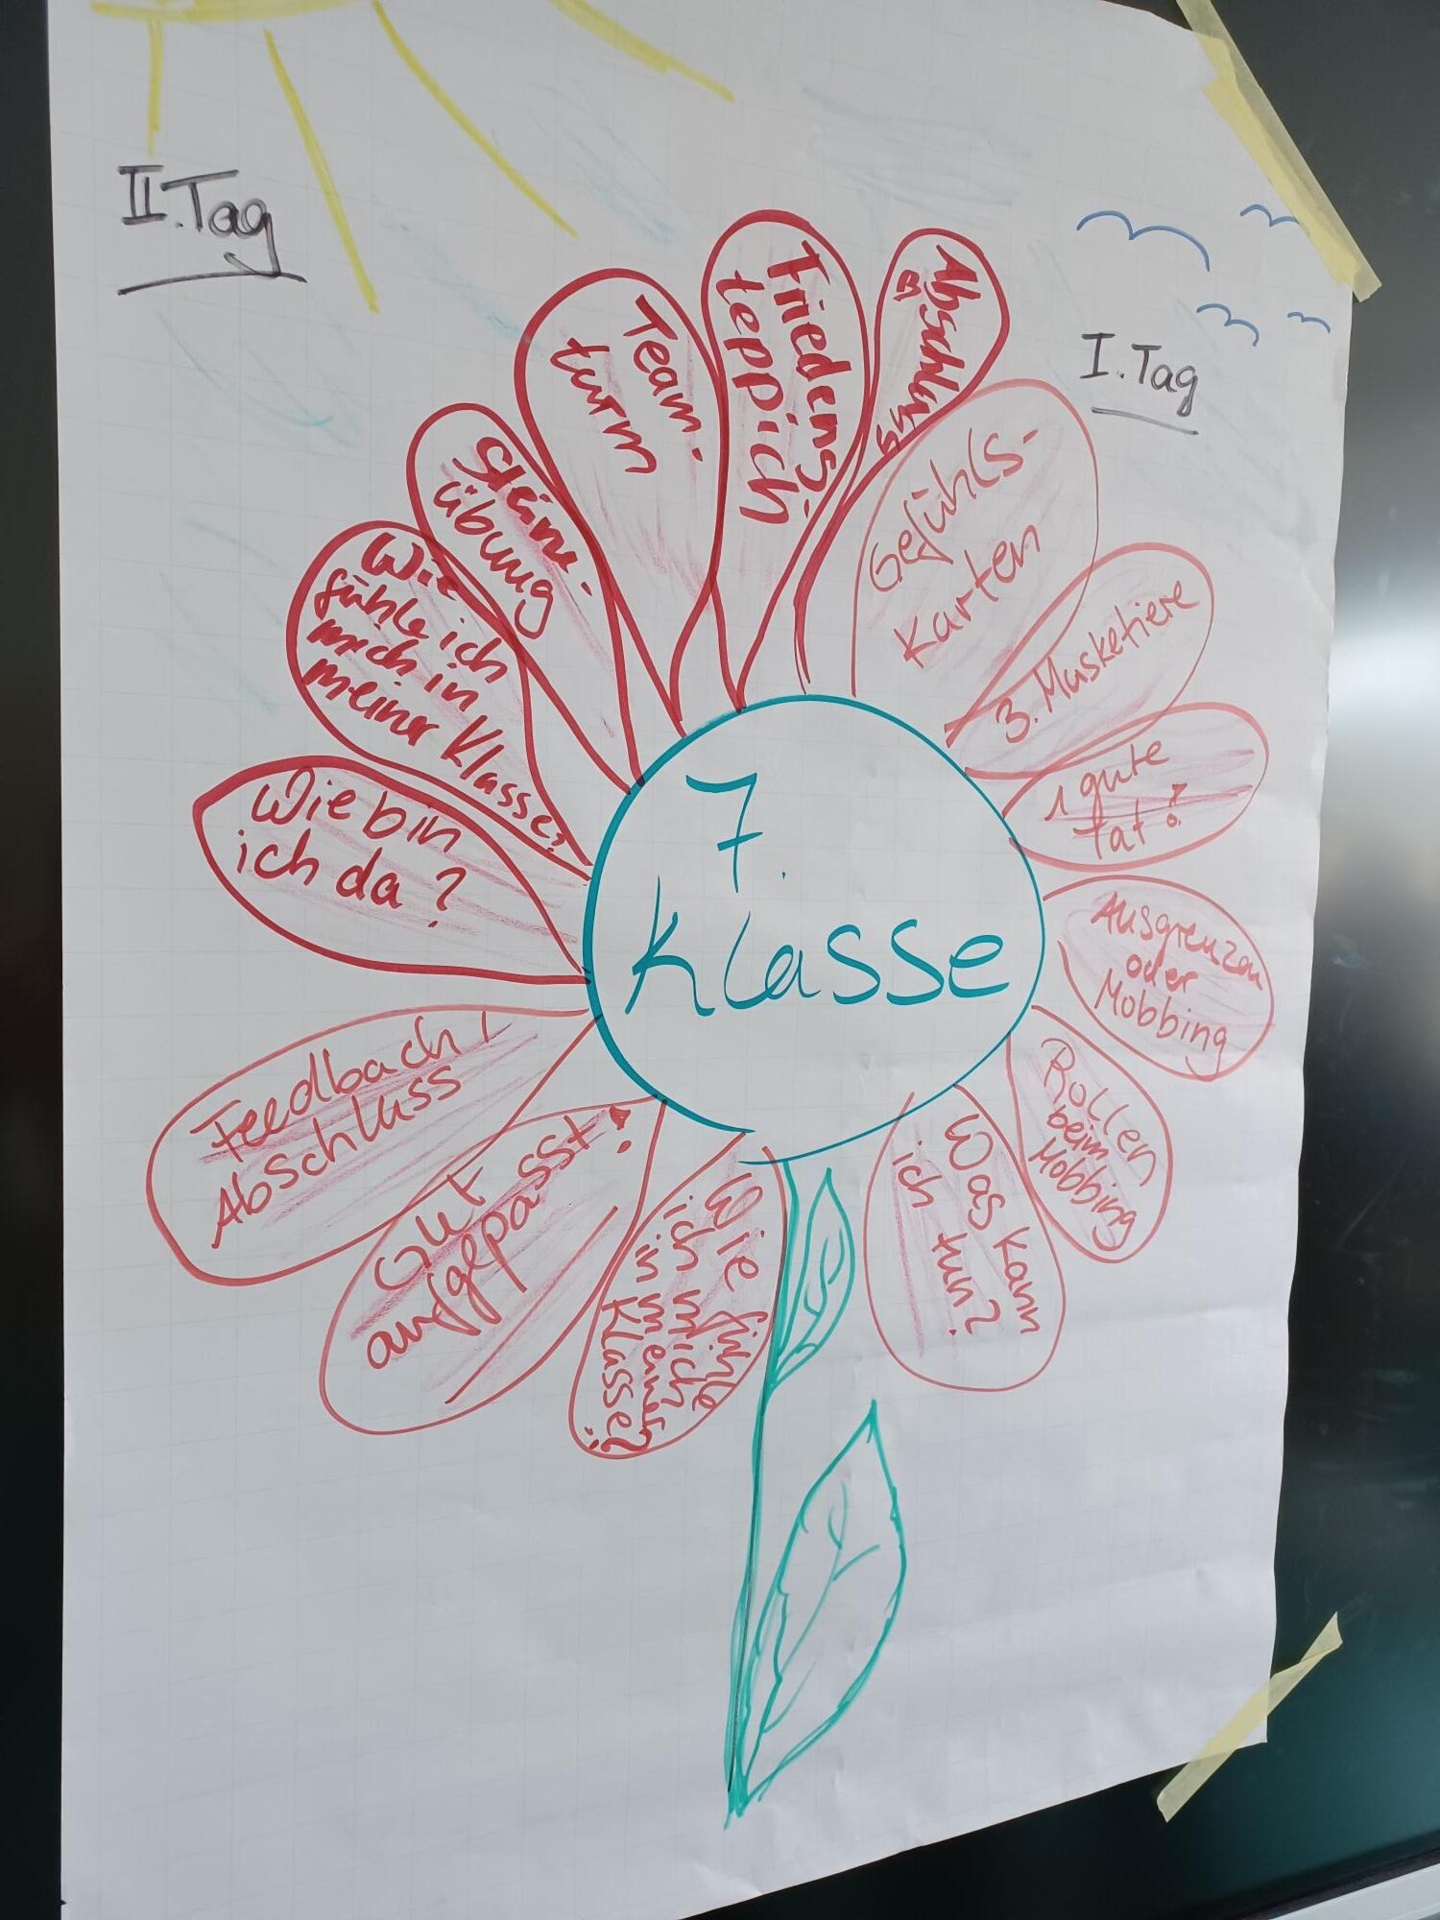 II. Tag
I. Tag
7.
Klasse
Gefühls-
karten
3. Musketiere
1 gute
Tat!
Ausgrenzen
oder
Mobbing
Rollen
beim
Mobbing
Was kann
ich tun?
Wie fühle
ich mich
in meiner
Klasse?
Gut
aufgepasst!
Feedback /
Abschluss
Wie bin
ich da?
Wie
fühle ich
mich in
meiner Klasse?
übung
Team-
turm
Friedens-
teppich
Abschluss